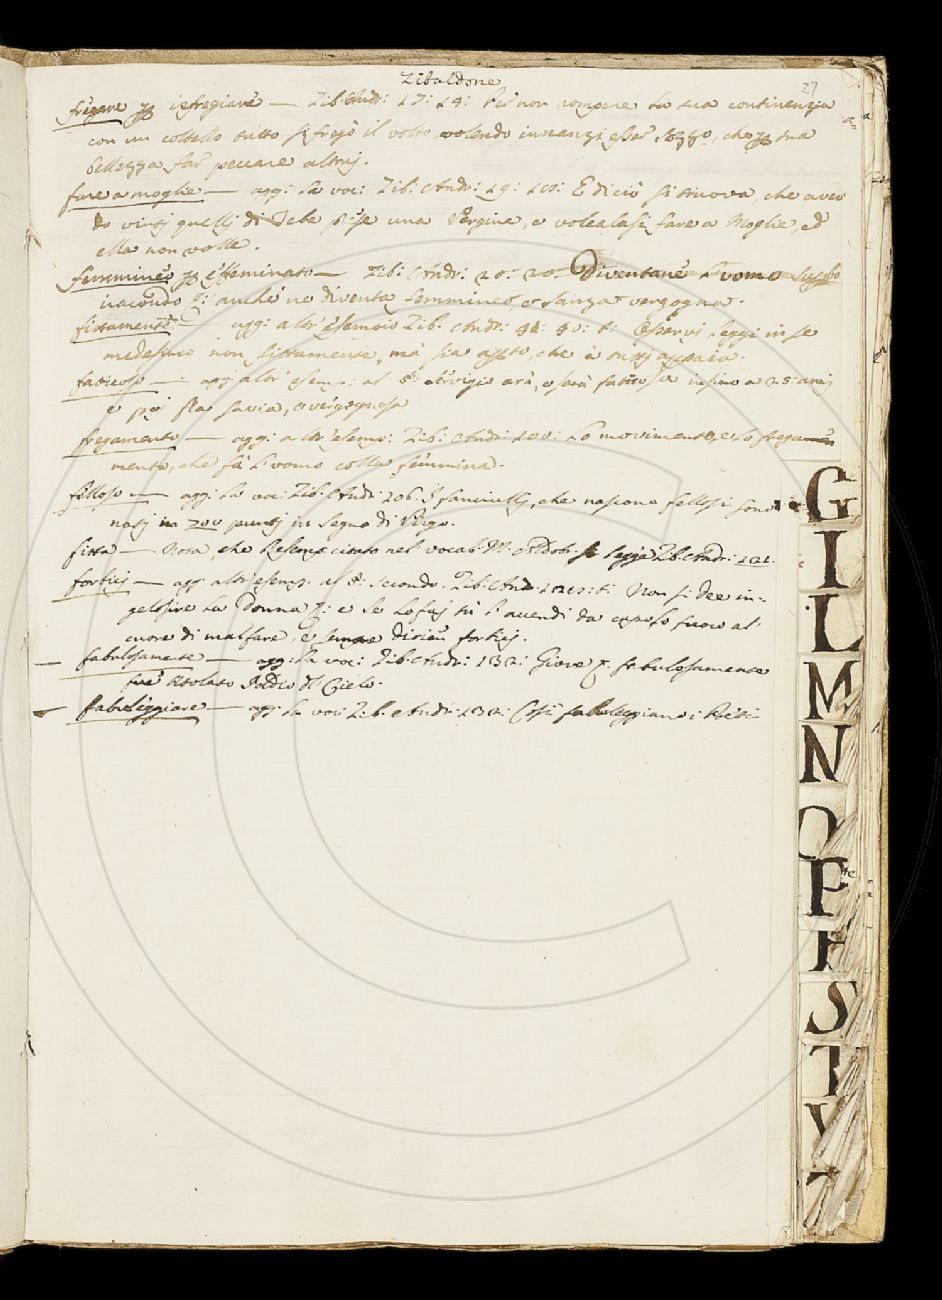 Zibaldone
27
fregare p isfregiare — Zib: Andr: 17: 18: Per non rompere la sua continenzia
con un coltello tutto si fregò il volto, volendo innanzi esser sozzo, che p sua
bellezza far peccare altrij.
fare a moglie — agg: la voc: Zib: Andr: 19: E di ciò si truova, che aven
do vintj quellj di Tebe prise una Vergine, e volealasi fare a Moglie, ed
ella non volle.
femmineo p effeminato — Zib: Andr: 20: 20. Diventane l'uomo
iracondo &: anche ne diventa femmineo, e sanza vergogna.
fittamente — agg: altr' esempio Zib. Andr: leggi in se
medesimo non fittamente, mà sia
faticoso — agg altr' esemp: al §: servigio arà, e sarà faticosa insino a 25: annj
e poj sia savia, e vergognosa
fregamento — agg: altr' esemp: Zib: Andr: 100: Lo movimento, e lo frega
mento, che fà l'uomo colla femmina.
felloso — agg: la voc: Zib. Andr: 106. I fanciullj, che nascono fellosi sono
natj in 200 puntj in segno di Virgo.
fitta — Nota che l'esemp citato nel vocab: si legge Zib. Andr: 121.
forbici — agg: altr' esemp. al §: secondo. Zib. And Non si dee in-
gelosire la Donna &: e se lo faj tù l'accendi da capo lo fuoco al
cuore di malfare, e sempre diriciu forbicj.
— fabulosamente — agg: la voc: Zib. Andr: 132: Giove &. fabulosamente
fue titolato Iddio del Cielo.
— fabuleggiare — agg: la voc: Zib. Andr: 132: Così fabuleggiano i Poeti
G
I
L
M
N
O
P
S
T
V